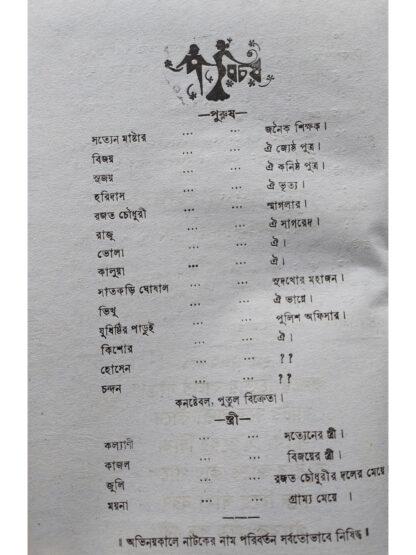 পরিচয়
—পুরুষ—
সত্যেন মাষ্টার ... ... জনৈক শিক্ষক।
বিজয় ... ... ঐ জ্যেষ্ঠ পুত্র।
সুজয় ... ... ঐ কনিষ্ঠ পুত্র।
হরিদাস ... ... ঐ ভৃত্য।
রজত চৌধুরী ... ... স্মাগলার।
রাজু ... ... ঐ সাগরেদ।
ভোলা ... ... ঐ।
কালুয়া ... ... ঐ।
সাতকড়ি ঘোষাল ... ... সুদখোর মহাজন।
ভিখু ... ... ঐ ভাগ্নে।
যুধিষ্টির পাড়ুই ... ... পুলিশ অফিসার।
কিশোর ... ... ঐ।
হোসেন ... ... ??
চন্দন ... ... ??
কনষ্টেবল, পুতুল বিক্রেতা।
—স্ত্রী—
কল্যাণী ... ... সত্যেনের স্ত্রী।
কাজল ... ... বিজয়ের স্ত্রী।
জুলি ... ... রজত চৌধুরীর দলের মেয়ে
ময়না ... ... গ্রাম্য মেয়ে।
॥ অভিনয়কালে নাটকের নাম পরিবর্তন সর্বতোভাবে নিষিদ্ধ ॥